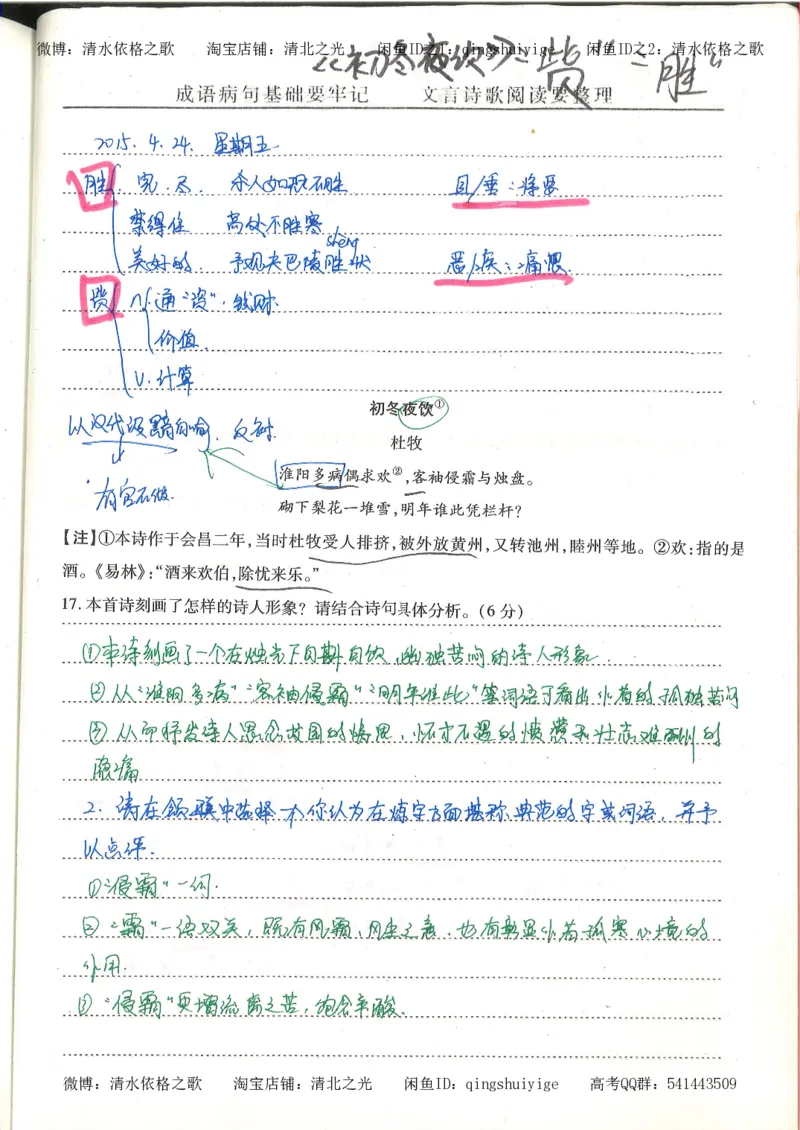 微博：清水依格之歌 淘宝店铺：清北之光 闲鱼ID之1：qingshuiyige 闲鱼ID之2：清水依格之歌
《初冬夜饮》："赀" "胜"
成语病句基础要牢记 文言诗歌阅读要整理
2015.4.24. 星期五
胜 完.尽. 杀人如恐不胜
禁得住 高处不胜寒
shèng
美好的 予观夫巴陵胜状 恶/疾：痛恨.
赀 n.通"资".钱财.
价值.
v.计算
初冬夜饮①
以汉代汲黯自喻. 反衬.
杜牧
淮阳多病偶求欢②,客袖侵霜与烛盘。
有官不做.
砌下梨花一堆雪,明年谁此凭栏杆?
【注】①本诗作于会昌二年,当时杜牧受人排挤,被外放黄州,又转池州,睦州等地。②欢:指的是
酒。《易林》:"酒来欢伯,除忧来乐。"
17.本首诗刻画了怎样的诗人形象?请结合诗句具体分析。(6分)
①本诗刻画了一个在烛光下自斟自饮,幽独苦闷的诗人形象.
②从"淮阳多病""客袖侵霜""明年谁此"等词语可看出作者的孤独苦闷
③从而抒发诗人思念故国的情思,怀才不遇的愤懑和壮志难酬的
隐痛
2.请在颔联中选择一个你认为在炼字方面堪称典范的字或词语,并予
以点评.
①"侵霜"一词.
②"霜"一语双关,既有风霜,风尘之意,也有彰显作者孤寒心境的
作用.
③"侵霜"更增流离之苦,饱含辛酸.
微博：清水依格之歌 淘宝店铺：清北之光 闲鱼ID：qingshuiyige 高考QQ群：541443509